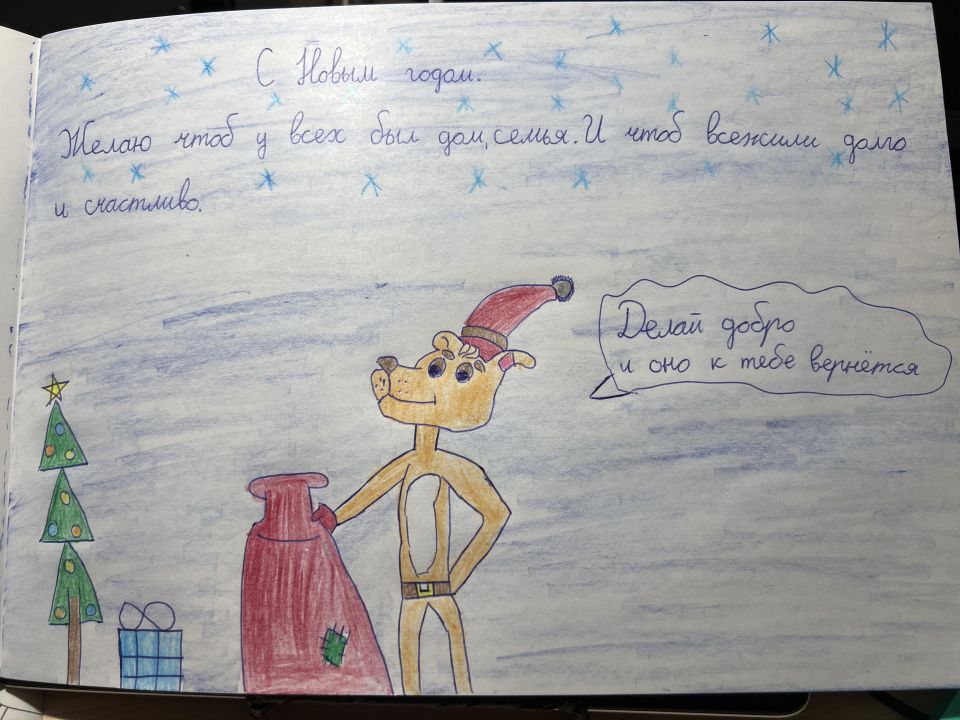 С Новым годом.
Желаю чтоб у всех был дом, семья. И чтоб всежили долго
и счастливо.
Делай добро
и оно к тебе вернётся